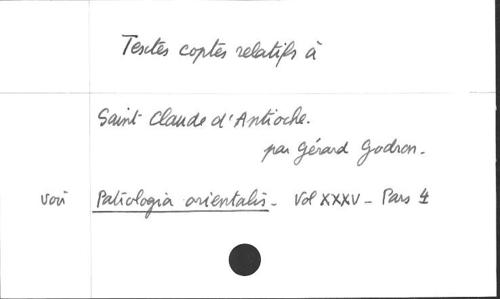 Textes coptes relatifs à
Saint Claude d'Antioche.
par Gérard Godron.
voir Patrologia orientalis. Vol XXXV - Pars 4